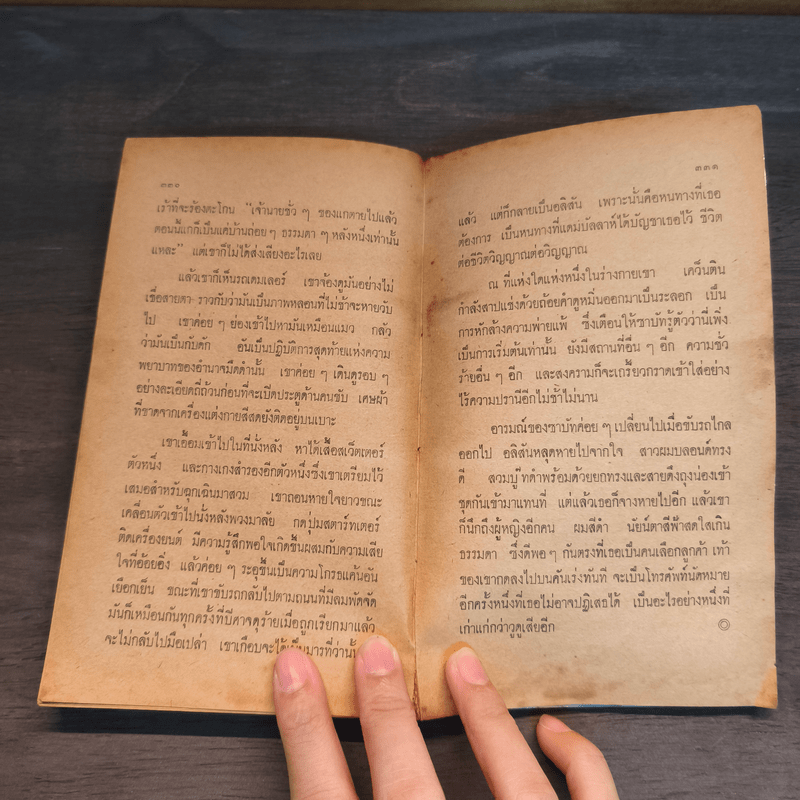 ๓๓๐
เร้าที่จะร้องตะโกน "เจ้านายชั่ว ๆ ของแกตายไปแล้ว
ตอนนี้แกก็เป็นแค่บ้านถ่อย ๆ ธรรมดา ๆ หลังหนึ่งเท่านั้น
แหละ" แต่เขาก็ไม่ได้ส่งเสียงอะไรเลย
แล้วเขาก็เห็นรถเดมเลอร์ เขาจ้องดูมันอย่างไม่
เชื่อสายตา ราวกับว่ามันเป็นภาพหลอนที่ไม่ช้าจะหายวับ
ไป เขาค่อย ๆ ย่องเข้าไปหามันเหมือนแมว กลัว
ว่ามันเป็นกับดัก อันเป็นปฏิบัติการสุดท้ายแห่งความ
พยาบาทของอำนาจมืดดำนั้น เขาค่อย ๆ เดินดูรอบ ๆ
อย่างละเอียดถี่ถ้วนก่อนที่จะเปิดประตูด้านคนขับ เศษผ้า
ที่ขาดจากเครื่องแต่งกายสีสดยังติดอยู่บนเบาะ
เขาเอื้อมเข้าไปในที่นั่งหลัง หาได้เสื้อสเว็ตเตอร์
ตัวหนึ่ง และกางเกงสำรองอีกตัวหนึ่งซึ่งเขาเตรียมไว้
เสมอสำหรับฉุกเฉินมาสวม เขาถอนหายใจยาวขณะ
เคลื่อนตัวเข้าไปนั่งหลังพวงมาลัย กดปุ่มสตาร์ทเตอร์
ติดเครื่องยนต์ มีความรู้สึกพอใจเกิดขึ้นผสมกับความเสีย
ใจที่อ้อยอิ่ง แล้วค่อย ๆ ระอุขึ้นเป็นความโกรธแค้นอัน
เยือกเย็น ขณะที่เขาขับรถกลับไปตามถนนที่มีลมพัดจัด
มันก็เหมือนกันทุกครั้งที่ปีศาจดุร้ายเมื่อถูกเรียกมาแล้ว
จะไม่กลับไปมือเปล่า เขาเกือบจะได้เป็นมารที่ว่านั้น
๓๓๑
แล้ว แต่ก็กลายเป็นอลิสัน เพราะนั่นคือหนทางที่เธอ
ต้องการ เป็นหนทางที่แดมบัลลาห์ได้บัญชาเธอไว้ ชีวิต
ต่อชีวิตวิญญาณต่อวิญญาณ
ณ ที่แห่งใดแห่งหนึ่งในร่างกายเขา เคว็นติน
กำลังสาปแช่งด้วยถ้อยคำดูหมิ่นออกมาเป็นระลอก เป็น
การหักล้างความพ่ายแพ้ ซึ่งเตือนให้ซาบัทรู้ตัวว่านี่เพิ่ง
เป็นการเริ่มต้นเท่านั้น ยังมีสถานที่อื่น ๆ อีก ความชั่ว
ร้ายอื่น ๆ อีก และสงครามก็จะเกรี้ยวกราดเข้าใส่อย่าง
ไร้ความปรานีอีกไม่ช้าไม่นาน
อารมณ์ของซาบัทค่อย ๆ เปลี่ยนไปเมื่อขับรถไกล
ออกไป อลิสันหลุดหายไปจากใจ สาวผมบลอนด์ทรง
ดี สวมบู๊ทดำพร้อมด้วยยกทรงและสายดึงถุงน่องเข้า
ชุดกันเข้ามาแทนที่ แต่แล้วเธอก็จางหายไปอีก แล้วเขา
ก็นึกถึงผู้หญิงอีกคน ผมสีดำ นัยน์ตาสีฟ้าสดใสเกิน
ธรรมดา ซึ่งดีพอ ๆ กันตรงที่เธอเป็นคนเลือกลูกค้า เท้า
ของเขากดลงไปบนคันเร่งทันที จะเป็นโทรศัพท์นัดหมาย
อีกครั้งหนึ่งที่เธอไม่อาจปฏิเสธได้ เป็นอะไรอย่างหนึ่งที่
เก่าแก่กว่าวูดูเสียอีก ◎